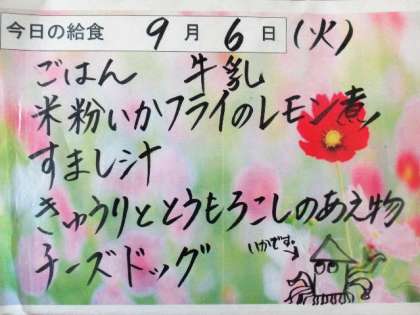 今日の給食 9月6日(火)
ごはん 牛乳
米粉いかフライのレモン煮
すまし汁
きゅうりととうもろこしのあえ物
チーズドッグ
いかです。